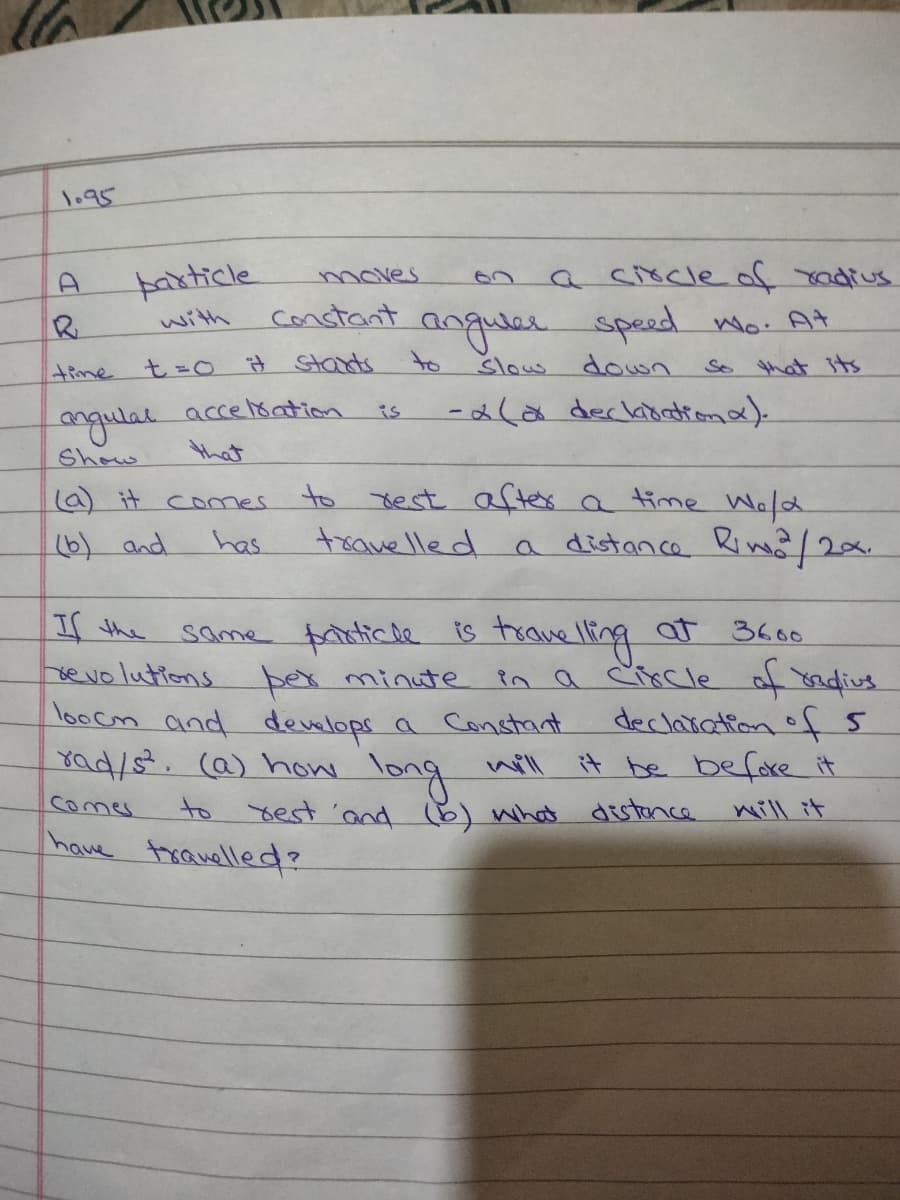 1.95
A particle moves on a circle of radius
R with constant angular speed ω₀. At
time t=0 it starts to slow down so that its
angular acceleration is -α (or decleration α).
Show that
(a) it comes to rest after a time ω₀/α
(b) and has travelled a distance Rω₀²/2α.
If the same particle is travelling at 3600
revolutions per minute in a circle of radius
100cm and develops a constant declaration of 5
rad/s². (a) how long will it be before it
comes to rest and (b) what distance will it
have travelled?